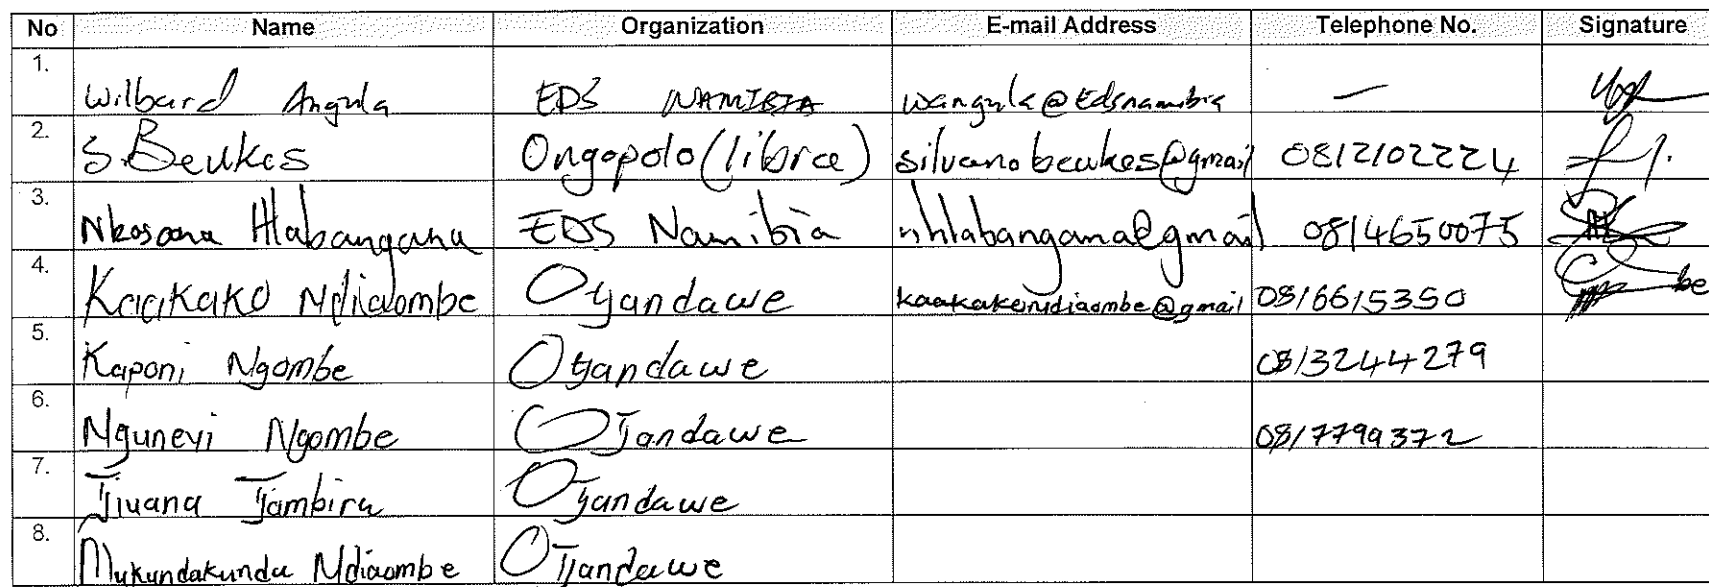 No Name Organization E-mail Address Telephone No. Signature
1. Wilbard Angula EDS NAMIBIA wangula@Edsnamibia —
2. S. Beukes Ongopolo (librce) silvanobeukes@gmail 0812102224
3. Nkosana Hlabangana EDS Namibia nhlabangana@gmail 0814650075
4. Kaakako Ndiaombe Otjandawe kaakakondiaombe@gmail 0816615350
5. Kaponi Ngombe Otjandawe 0813244279
6. Nguneyi Ngombe OTjandawe 0817799372
7. Tjivana Tjambiru OTjandawe
8. Mukundakunda Ndiaombe OTjandawe